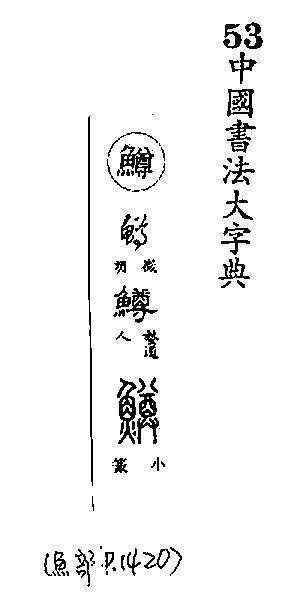 53中國書法大字典
鱒
鱒
徵明
鱒
人
鱒
小篆
(魚部 P.1420)